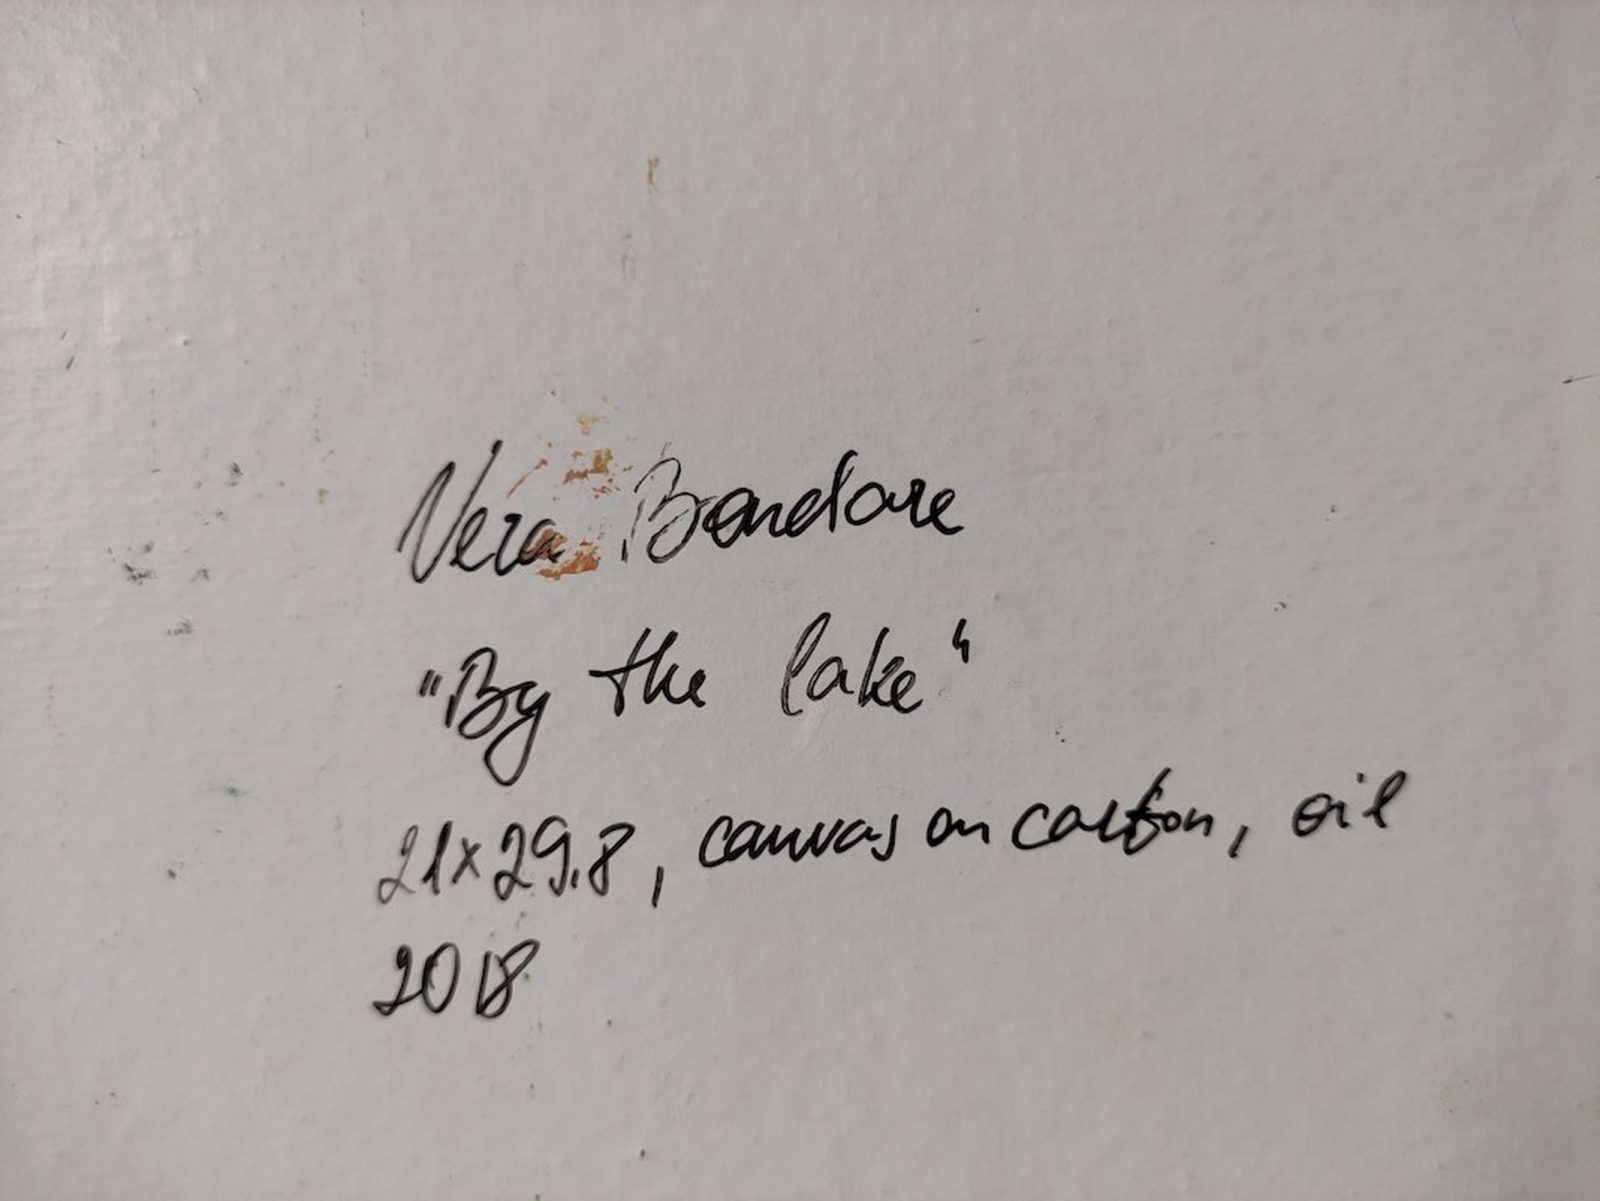 Vera Bondare
"By the lake"
21x29.8, canvas on carton, oil
2018